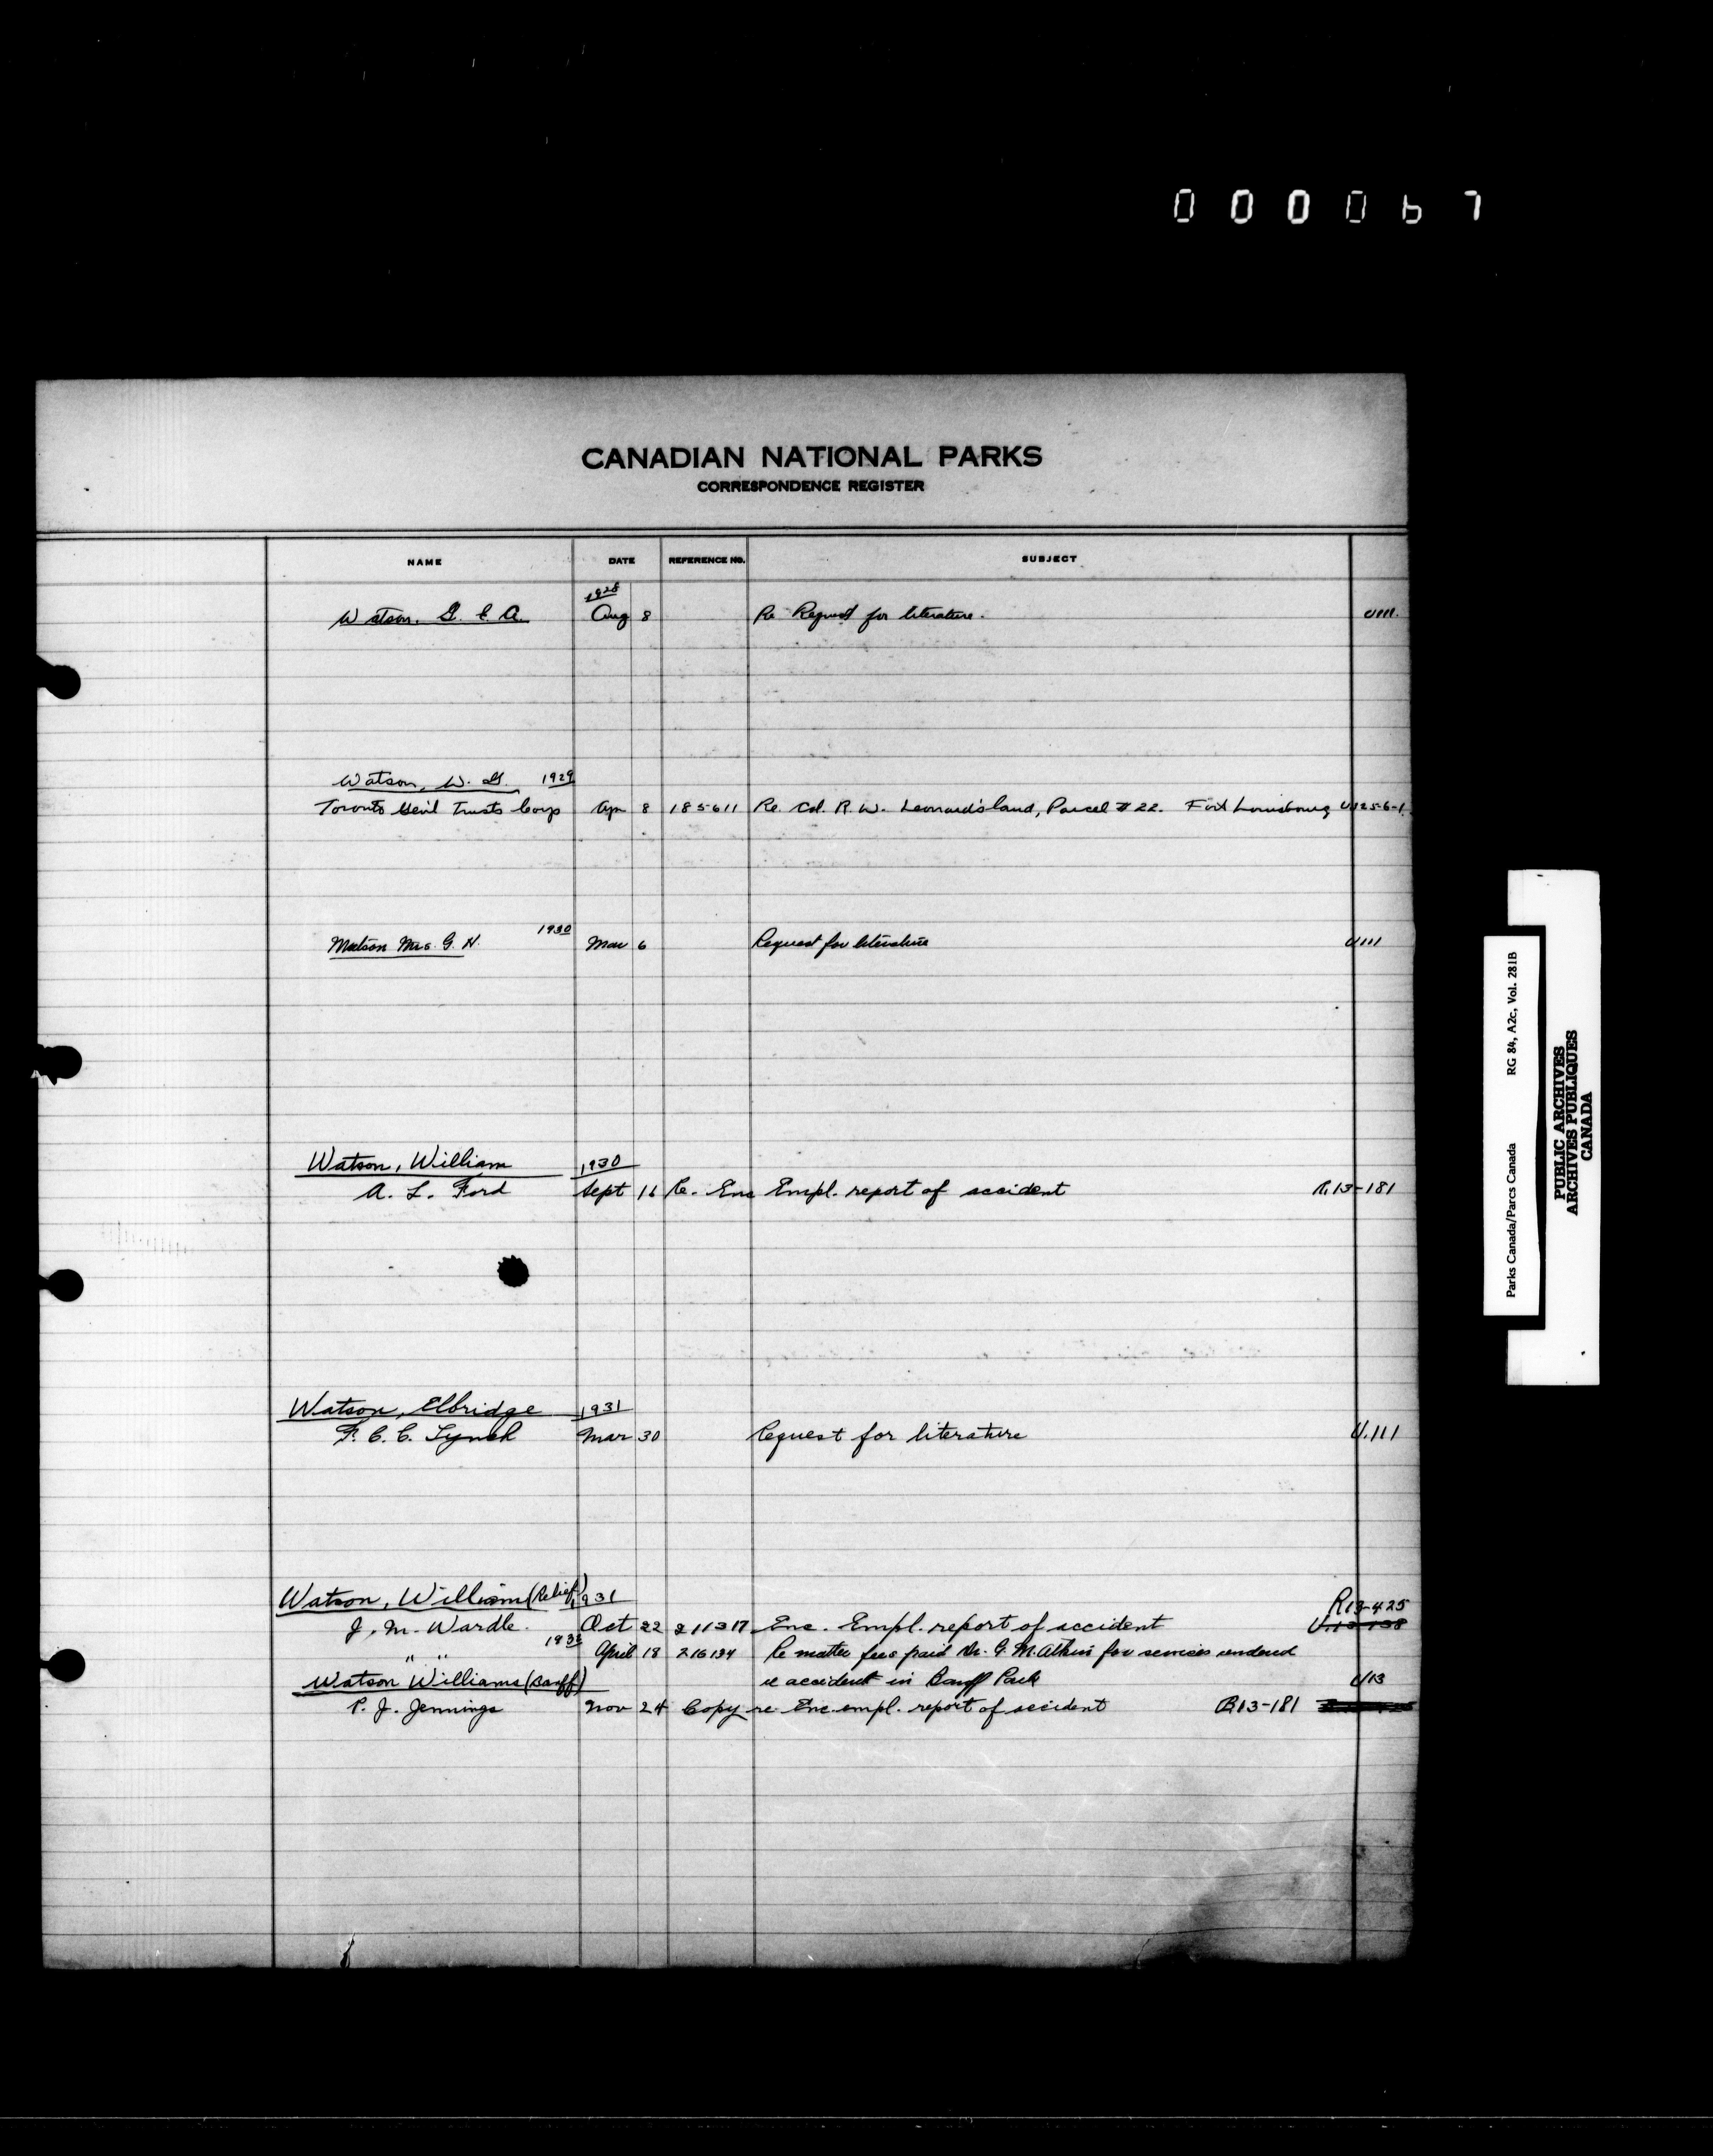 000067
CANADIAN NATIONAL PARKS
CORRESPONDENCE REGISTER
NAME DATE REFERENCE NO. SUBJECT
1928
Watson, G. E. A. Aug 8 Re Request for literature. U111.
Watson, W. G. 1929
Toronto Gen'l Trusts Corp Apr 8 185611 Re. Col. R. W. Leonard's land, Parcel # 22. Fort Louisbourg U125-6-1.
1930
Watson Mrs. G. H. Mar 6 Request for literature U111
Watson, William 1930
A. L. Ford Sept 16 Re. Enc Empl. report of accident R13-181
Watson, Elbridge 1931
F. C. C. Lynch Mar 30 Request for literature U.111
Watson, William (Relief) 1931 R13-425
J. M. Wardle. Oct 22 211317 Enc. Empl. report of accident U.13-138
" " 193 April 18 216134 Re matter fees paid Dr. G. M. Atkin for services rendered
re accident in Banff Park U13
Watson Williams (Banff)
P. J. Jennings Nov 24 Copy re Enc. empl. report of accident B13-181
Parks Canada/Parcs Canada RG 84, A2c, Vol. 281B
PUBLIC ARCHIVES
ARCHIVES PUBLIQUES
CANADA